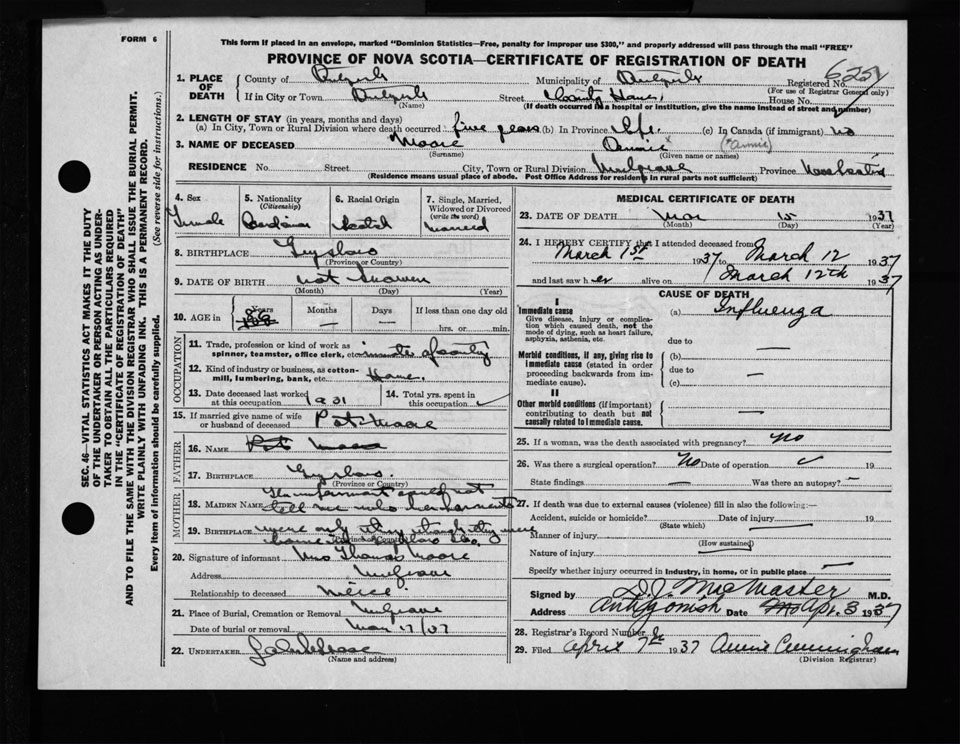 FORM 6
This form if placed in an envelope, marked "Dominion Statistics—Free, penalty for improper use $300," and properly addressed will pass through the mail "FREE"
PROVINCE OF NOVA SCOTIA—CERTIFICATE OF REGISTRATION OF DEATH
1. PLACE OF DEATH
County of
Municipality of
Registered No.
(For use of Registrar General only)
If in City or Town
(Name)
Street County Home
House No.
(If death occurred in a hospital or institution, give the name instead of street and number)
2. LENGTH OF STAY (in years, months and days)
(a) In City, Town or Rural Division where death occurred five years (b) In Province Life (c) In Canada (if immigrant) no
3. NAME OF DECEASED Moore Annie (Annie)
(Surname) (Given name or names)
RESIDENCE No. Street City, Town or Rural Division Mulgrave Province Nova Scotia
(Residence means usual place of abode. Post Office Address for residents in rural parts not sufficient)
4. Sex Female
5. Nationality (Citizenship) Canadian
6. Racial Origin Scotch
7. Single, Married, Widowed or Divorced (write the word) married
8. BIRTHPLACE Guysboro
(Province or Country)
9. DATE OF BIRTH not known
(Month) (Day) (Year)
10. AGE in Years Months — Days — If less than one day hrs. or min.
OCCUPATION
11. Trade, profession or kind of work as spinner, teamster, office clerk, etc. inmate of county
12. Kind of industry or business, as cotton-mill, lumbering, bank, etc. Home.
13. Date deceased last worked at this occupation 1931
14. Total yrs. spent in this occupation
15. If married give name of wife or husband of deceased Pat Moore
FATHER
16. NAME Pat Moore
17. BIRTHPLACE Guysboro.
(Province or Country)
MOTHER
18. MAIDEN NAME The informant could not tell me who her parents
19. BIRTHPLACE were only they thought they were
(Province or Country)
20. Signature of informant Mrs Thomas Moore
Address Mulgrave
Relationship to deceased niece
21. Place of Burial, Cremation or Removal Mulgrave
Date of burial or removal Mar 17/37
22. UNDERTAKER
(Name and address)
MEDICAL CERTIFICATE OF DEATH
23. DATE OF DEATH Mar 15 1937
(Month) (Day) (Year)
24. I HEREBY CERTIFY that I attended deceased from
March 1st 1937 to March 12 1937
and last saw h er alive on March 12th 1937
CAUSE OF DEATH
I
Immediate cause
Give disease, injury or complication which caused death, not the mode of dying, such as heart failure, asphyxia, asthenia, etc.
(a) Influenza
due to —
Morbid conditions, if any, giving rise to immediate cause (stated in order proceeding backwards from immediate cause).
(b)
due to —
(c)
II
Other morbid conditions (if important) contributing to death but not causally related to immediate cause.
—
25. If a woman, was the death associated with pregnancy? No
26. Was there a surgical operation? No Date of operation 19
State findings — Was there an autopsy? —
27. If death was due to external causes (violence) fill in also the following:—
Accident, suicide or homicide? Date of injury 19
(State which)
Manner of injury
(How sustained)
Nature of injury
Specify whether injury occurred in industry, in home, or in public place —
Signed by MacMaster M.D.
Address Antigonish Date Apr. 3 1937
28. Registrar's Record Number
29. Filed April 7th 1937 Annie Cunningham
(Division Registrar)
SEC. 46—VITAL STATISTICS ACT MAKES IT THE DUTY
OF THE UNDERTAKER OR PERSON ACTING AS UNDERTAKER
TO OBTAIN ALL THE PARTICULARS REQUIRED
IN THE "CERTIFICATE OF REGISTRATION OF DEATH"
AND TO FILE THE SAME WITH THE DIVISION REGISTRAR WHO SHALL ISSUE THE BURIAL PERMIT.
WRITE PLAINLY WITH UNFADING INK. THIS IS A PERMANENT RECORD.
Every item of information should be carefully supplied. (See reverse side for instructions.)